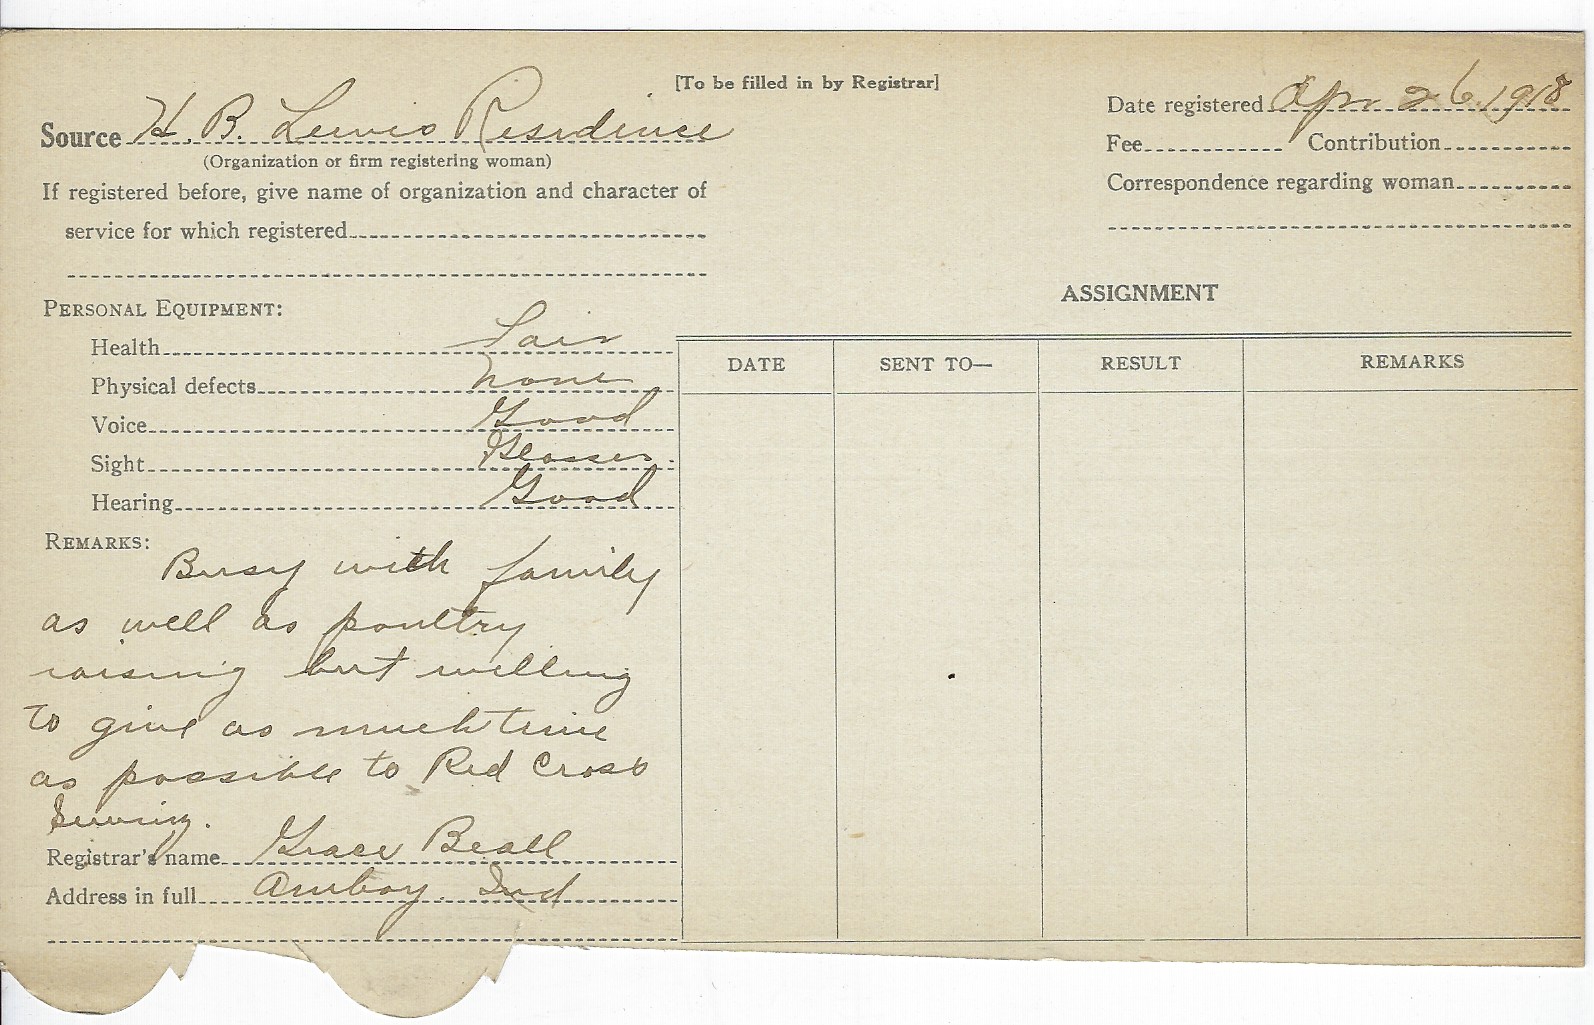 [To be filled in by Registrar]
Source H. B. Lewis Residence
(Organization or firm registering woman)
If registered before, give name of organization and character of
service for which registered
Date registered Apr 26, 1918
Fee Contribution
Correspondence regarding woman
PERSONAL EQUIPMENT:
Health Fair
Physical defects None
Voice Good
Sight Glasses.
Hearing Good
REMARKS:
Busy with family
as well as poultry
raising but willing
to give as much time
as possible to Red Cross
Sewing.
Registrar's name Grace Beall
Address in full Amboy. Ind
ASSIGNMENT
DATE SENT TO— RESULT REMARKS